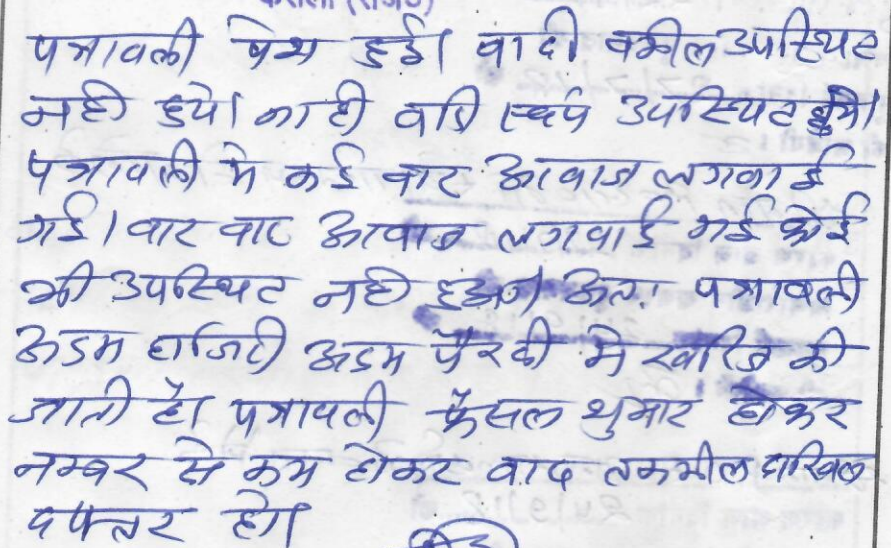 पत्रावली पेश हुई। वादी वकील उपस्थित
नही हुये। ना ही वादी स्वयं उपस्थित हुये।
पत्रावली मे कई बार आवाज लगवाई
गई। बार बार आवाज लगवाई गई कोई
भी उपस्थित नही हुआ। अतः पत्रावली
अदम हाजिरी अदम पैरवी मे खारिज की
जाती है। पत्रावली फैसल शुमार होकर
नम्बर से कम होकर बाद तकमील दाखिल
दफ्तर हो।